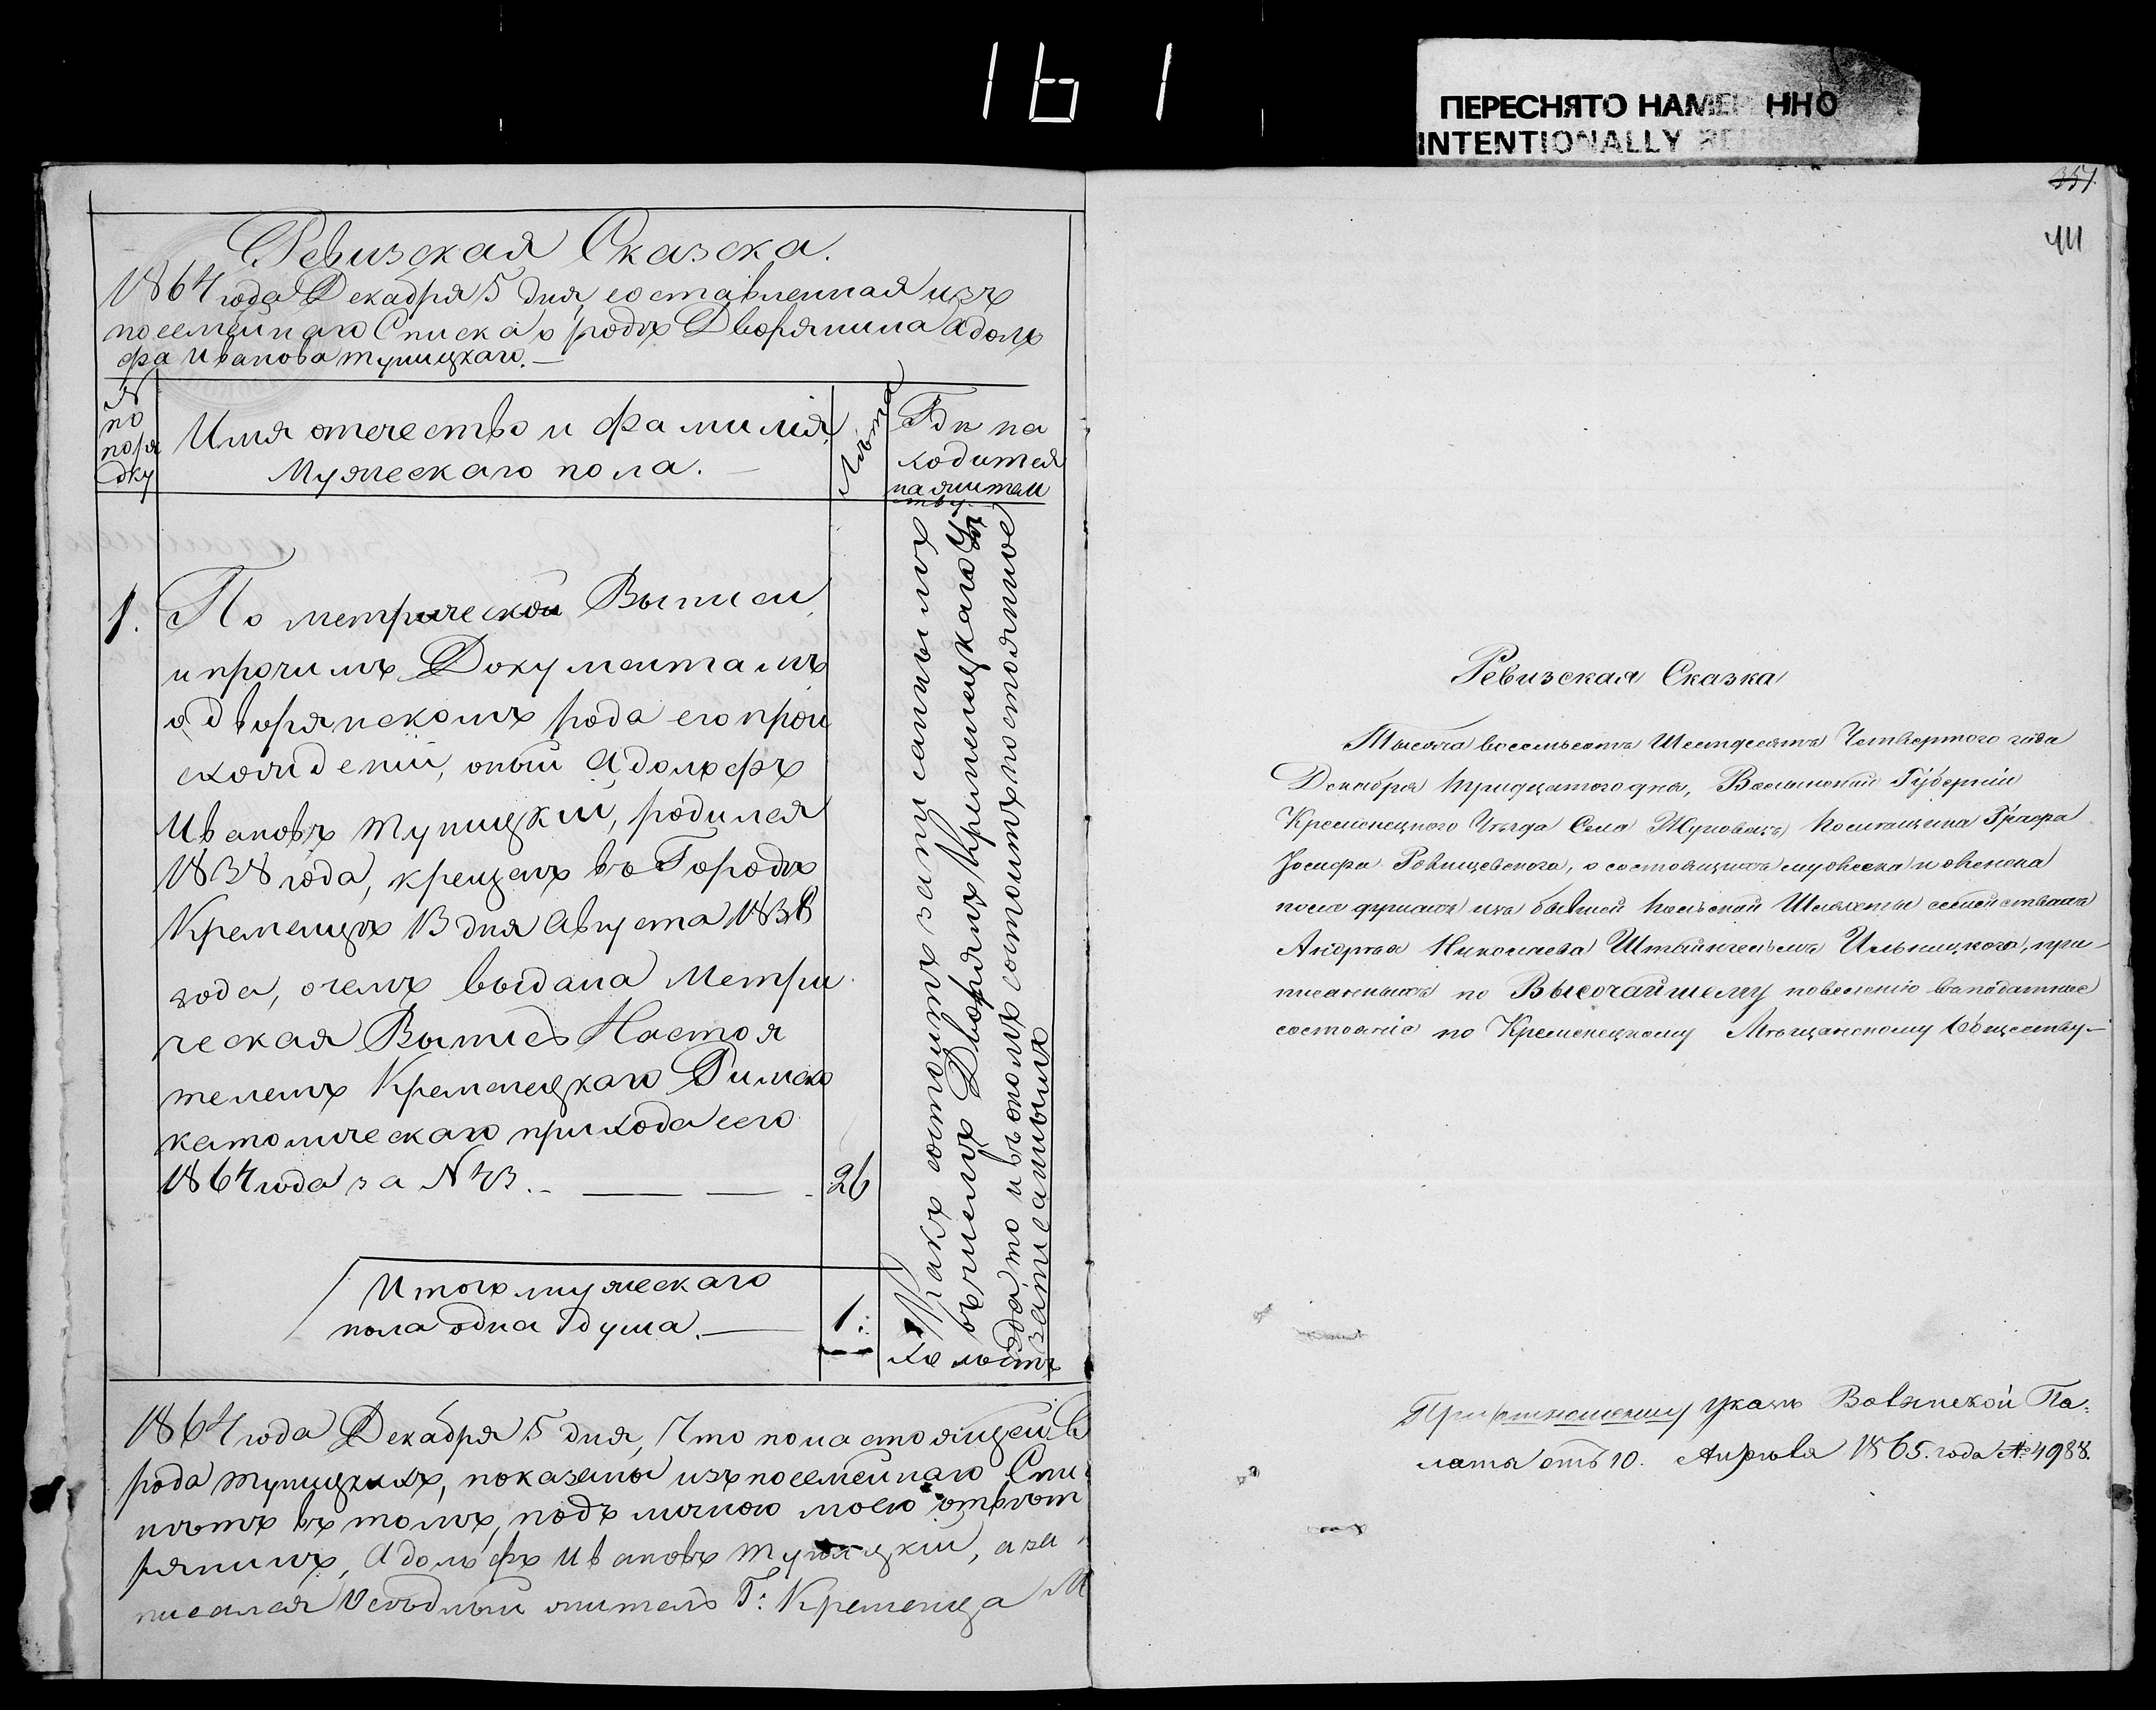 161
ПЕРЕСНЯТО НАМЕ ННО
INTENTIONALLY
Ревизская Сказска.
1864 года Декабря 5 дня, составленная изъ
посемейнаго Списка о родѣ Дворянина Адоль
фа Иванова Тупицкаго. —
№ по поря дку
Имя отечество и фамилія
Мужескаго пола. —
Лѣта
Гдѣ на
ходится
на жител
ству.
1. По метрической Выписи
и прочимъ Документамъ
о дворянскомъ рода его прои
схожденіи, оный Адольфъ
Ивановъ Тупицкій, родился
1838 года, крещенъ въ Городѣ
Кременцѣ 13 дня Августа 1838
года, о чемъ выдана Метри
ческая Выпись Настоя
телемъ Кременецкаго Римско
католическаго прихода сего
1864 года за N 43. — — 26
Какъ состоитъ записаннымъ
въ числѣ Дворянъ Кременецкаго Уѣ
зда то и въ ономъ состоитъ постоянное
Холостъ
Итого мужескаго
пола одна душа. — 1:
1864 года Декабря 5 дня, Что по настоящей
рода Тупицкихъ, показаны изъ посемейнаго Спи
нѣтъ въ томъ, подъ личною моею отвѣт
рянинъ, Адольфъ Ивановъ Тупицкій, а за
писался Осѣдлый житель Г: Кременца М
351
411
Ревизская Сказка
Тысяча восемьсотъ Шестдесятъ Четвертого года
Декабря тридцатого дня, Волынской Губерніи
Кременецкого Уѣзда Села Жуковецъ помѣщика Графа
Іосифа Ровищевского, о состоящихъ мужеска и женска
пола душахъ изъ бывшей польской Шляхты семействахъ
Андрея Николаева Штейнгельмъ Ильницкого, при-
писанныхъ по Высочайшему повеленію въ податное
состояніе по Кременецкому Мѣщанскому Обществу —
При указѣ Волынской Па-
латы отъ 10. Апрѣля 1865. года № 4988.